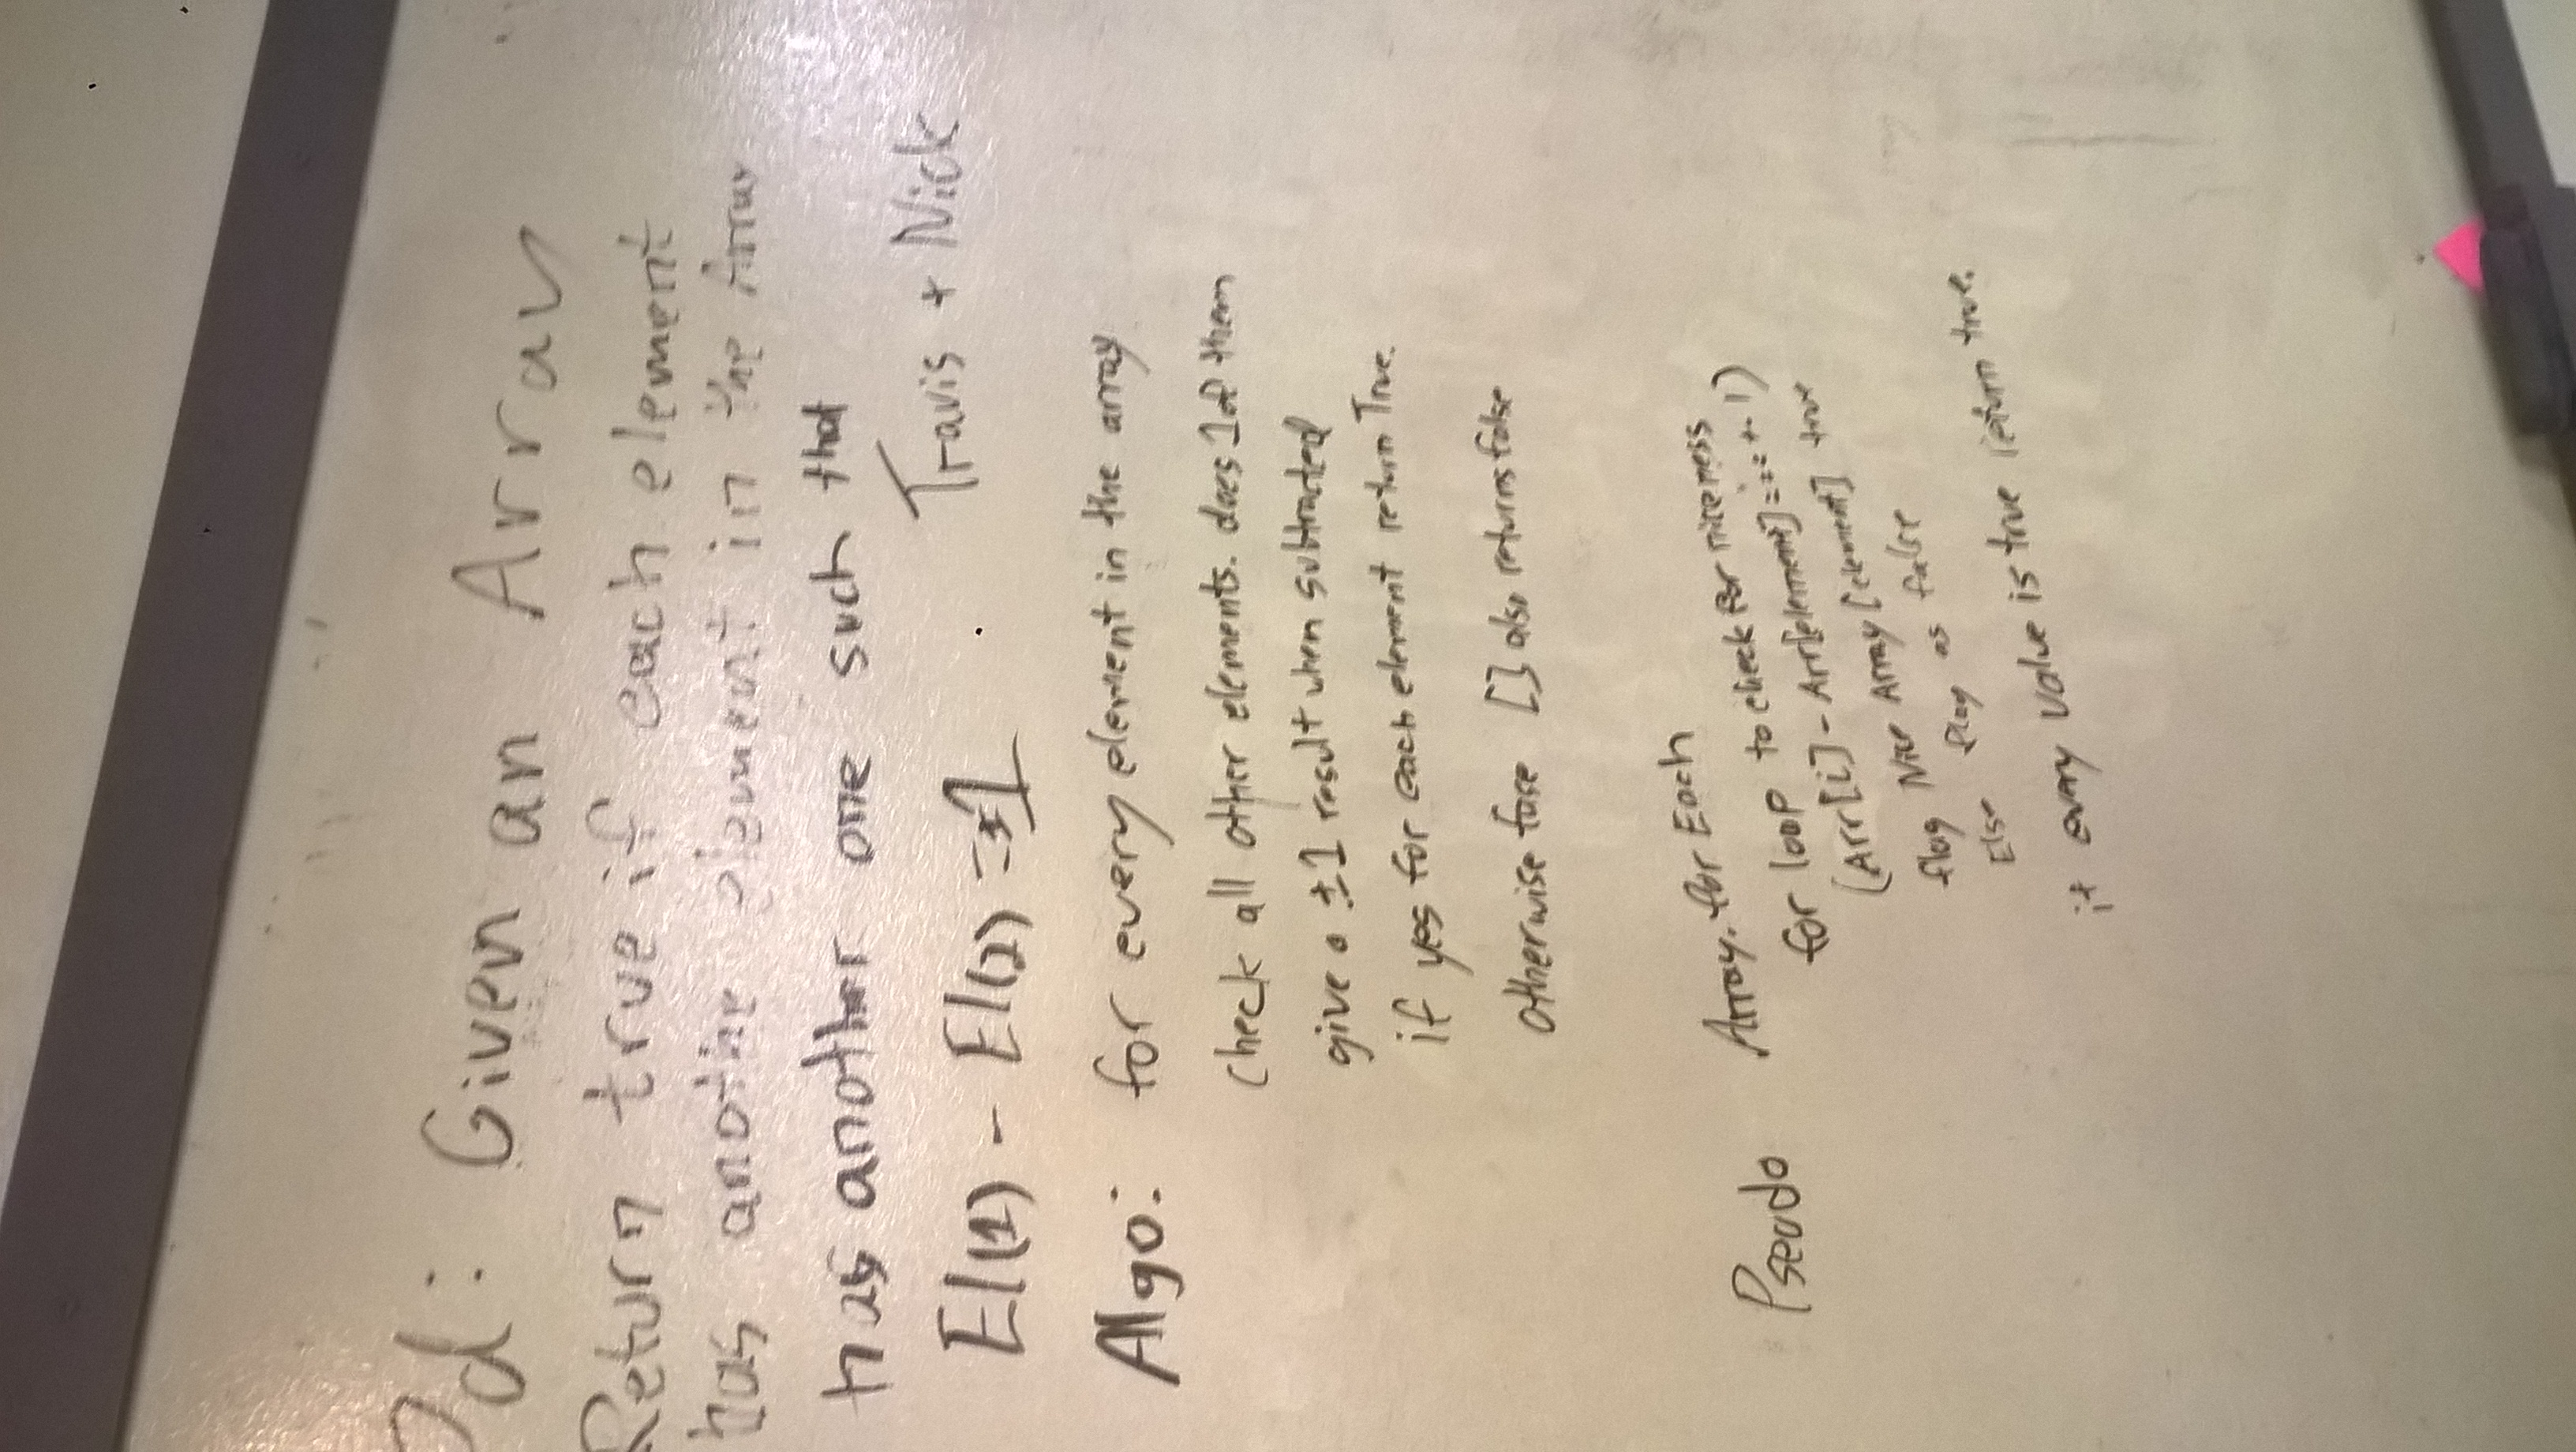 Pd: Given an Array
Return true if each element
has anothe element in the Array
has another one such that
Travis + Nick
El(1) - El(2) = ±1
Algo: for every element in the array
check all other elements. does 1 of them
give a ±1 result when subtracted
if yes for each element return True.
otherwise fase [] also returns false
Pseudo Array.forEach
for loop to check for niceness
(Arr[i] - Arr[element] === +-1)
flag Nice Array[element] true
Else flag as false
if every value is true return true.